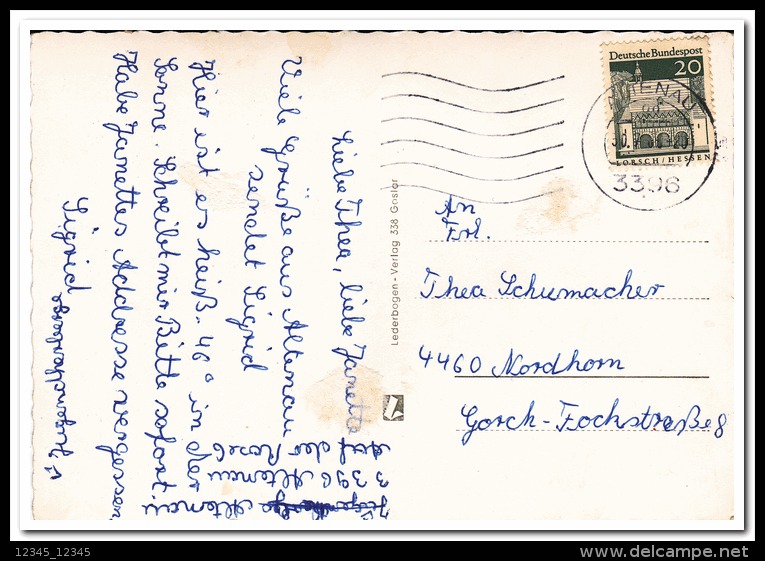 Liebe Thea, liebe Janette
Viele Grüße aus Altenau
sendet Sigrid
Hier ist es heiß. 46° in der
Sonne. Schreibt mir Bitte sofort.
Habe Janettes Addresse vergessen
Sigrid
Auf der Rose 6
3396 Altenau
Altenau
Lederbogen - Verlag 338 Goslar
Deutsche Bundespost
20
LORSCH/HESSEN
3396
An
Frl.
Thea Schumacher
4460 Nordhorn
Gorch-Fockstraße 8
12345_12345
www.delcampe.net